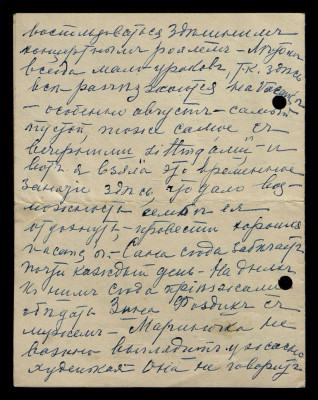 воспользоваться здешнимъ
концертнымъ роялемъ – Летомъ
всегда мало уроковъ, т.к. здесь
все разъезжаются на
– особенно августъ – самый
пустой, тоже самое съ
вечерними – и
вотъ я взяла это временное
занятие здесь, что дало воз-
можность семье ея
отдохнуть – провести хорошия
– Сана сюда забегаетъ
почти каждый день – На дняхъ
къ нимъ сюда приезжали
обедать Зина Фоздикъ съ
мужемъ – Мариночка не
важно выглядитъ ужасно
худенькая она не говоритъ